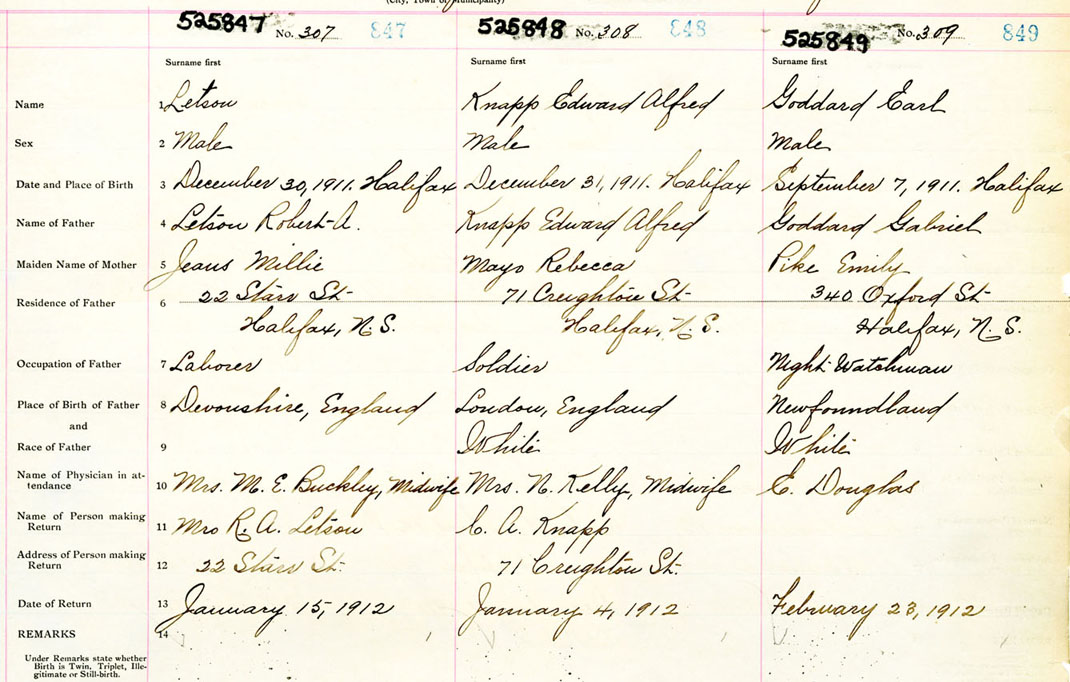 (City, Town or Municipality)
525847 No. 307 847 525848 No. 308 848 525849 No. 309 849
Surname first Surname first Surname first
Name 1 Letson Knapp Edward Alfred Goddard Earl
Sex 2 Male Male Male
Date and Place of Birth 3 December 30, 1911. Halifax December 31, 1911. Halifax September 7, 1911. Halifax
Name of Father 4 Letson Robert A. Knapp Edward Alfred Goddard Gabriel
Maiden Name of Mother 5 Jeans Millie Mayo Rebecca Pike Emily
Residence of Father 6 22 Starr St 71 Creighton St 340 Oxford St
Halifax, N.S. Halifax, N.S. Halifax, N.S.
Occupation of Father 7 Laborer Soldier Night Watchman
Place of Birth of Father 8 Devonshire, England London, England Newfoundland
and
Race of Father 9 White White
Name of Physician in at-
tendance 10 Mrs. M. E. Buckley, Midwife Mrs. N. Kelly, Midwife E. Douglas
Name of Person making
Return 11 Mrs R. A. Letson C. A. Knapp
Address of Person making
Return 12 22 Starr St. 71 Creighton St.
Date of Return 13 January 15, 1912 January 4, 1912 February 23, 1912
REMARKS 14
Under Remarks state whether
Birth is Twin, Triplet, Ille-
gitimate or Still-birth.